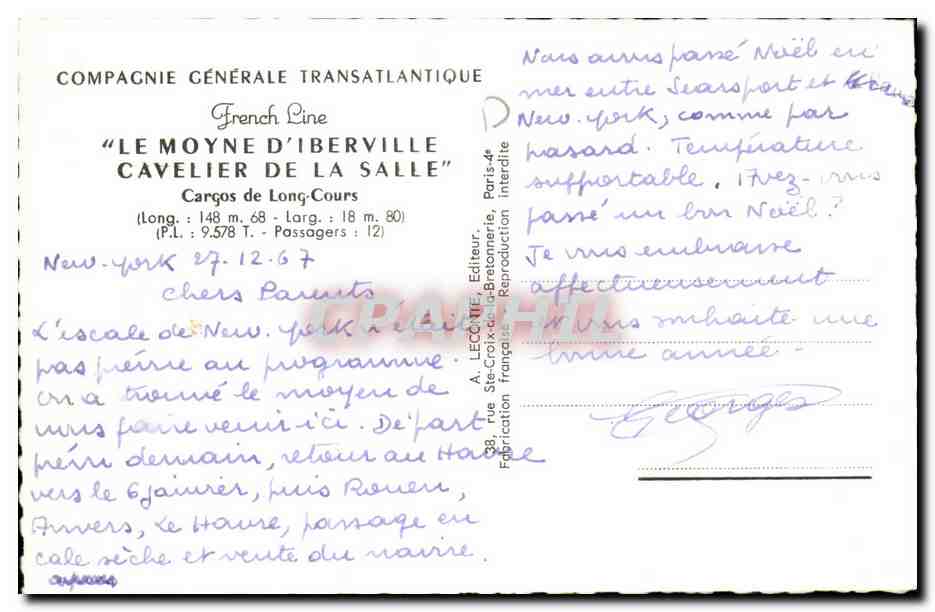 COMPAGNIE GÉNÉRALE TRANSATLANTIQUE
French Line
"LE MOYNE D'IBERVILLE
CAVELIER DE LA SALLE"
Cargos de Long-Cours
(Long. : 148 m. 68 - Larg. : 18 m. 80)
(P.L. : 9.578 T. - Passagers : 12)
New-York 27.12.67
Chers Parents
L'escale de New-York n'était
pas prévue au programme.
on a trouvé le moyen de
nous faire venir ici. Départ
prévu demain, retour au Havre
vers le 6 janvier, puis Rouen,
Anvers, Le Havre, passage en
cale sèche et vente du navire.
A. LECONTE, Editeur,
38, rue Ste-Croix-de-la-Bretonnerie, Paris-4e
Fabrication française Reproduction interdite
Nous avons passé Noël en
mer entre Searsport et
New-York, comme par
hasard. Température
supportable. Avez-vous
passé un bon Noël ?
Je vous embrasse
affectueusement
et vous souhaite une
bonne année -
Georges
CPAPHIL